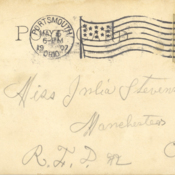 PORTSMOUTH
MAY 6
6-PM
OHIO.
Miss Julia Stevens
Manchester
R. F. D.